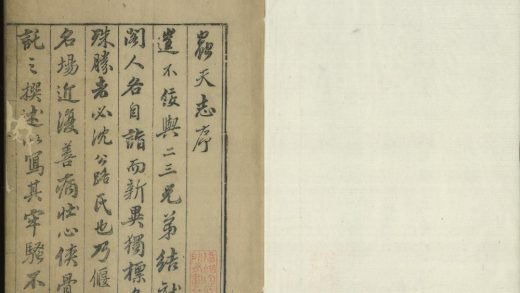 蟲天志序
不佞與二三兄弟結
閣人各自詣而新異獨標
殊勝者必沈公路氏也乃偃
名場近復善病壯心俠骨
託之撰述以寫其牢騷不